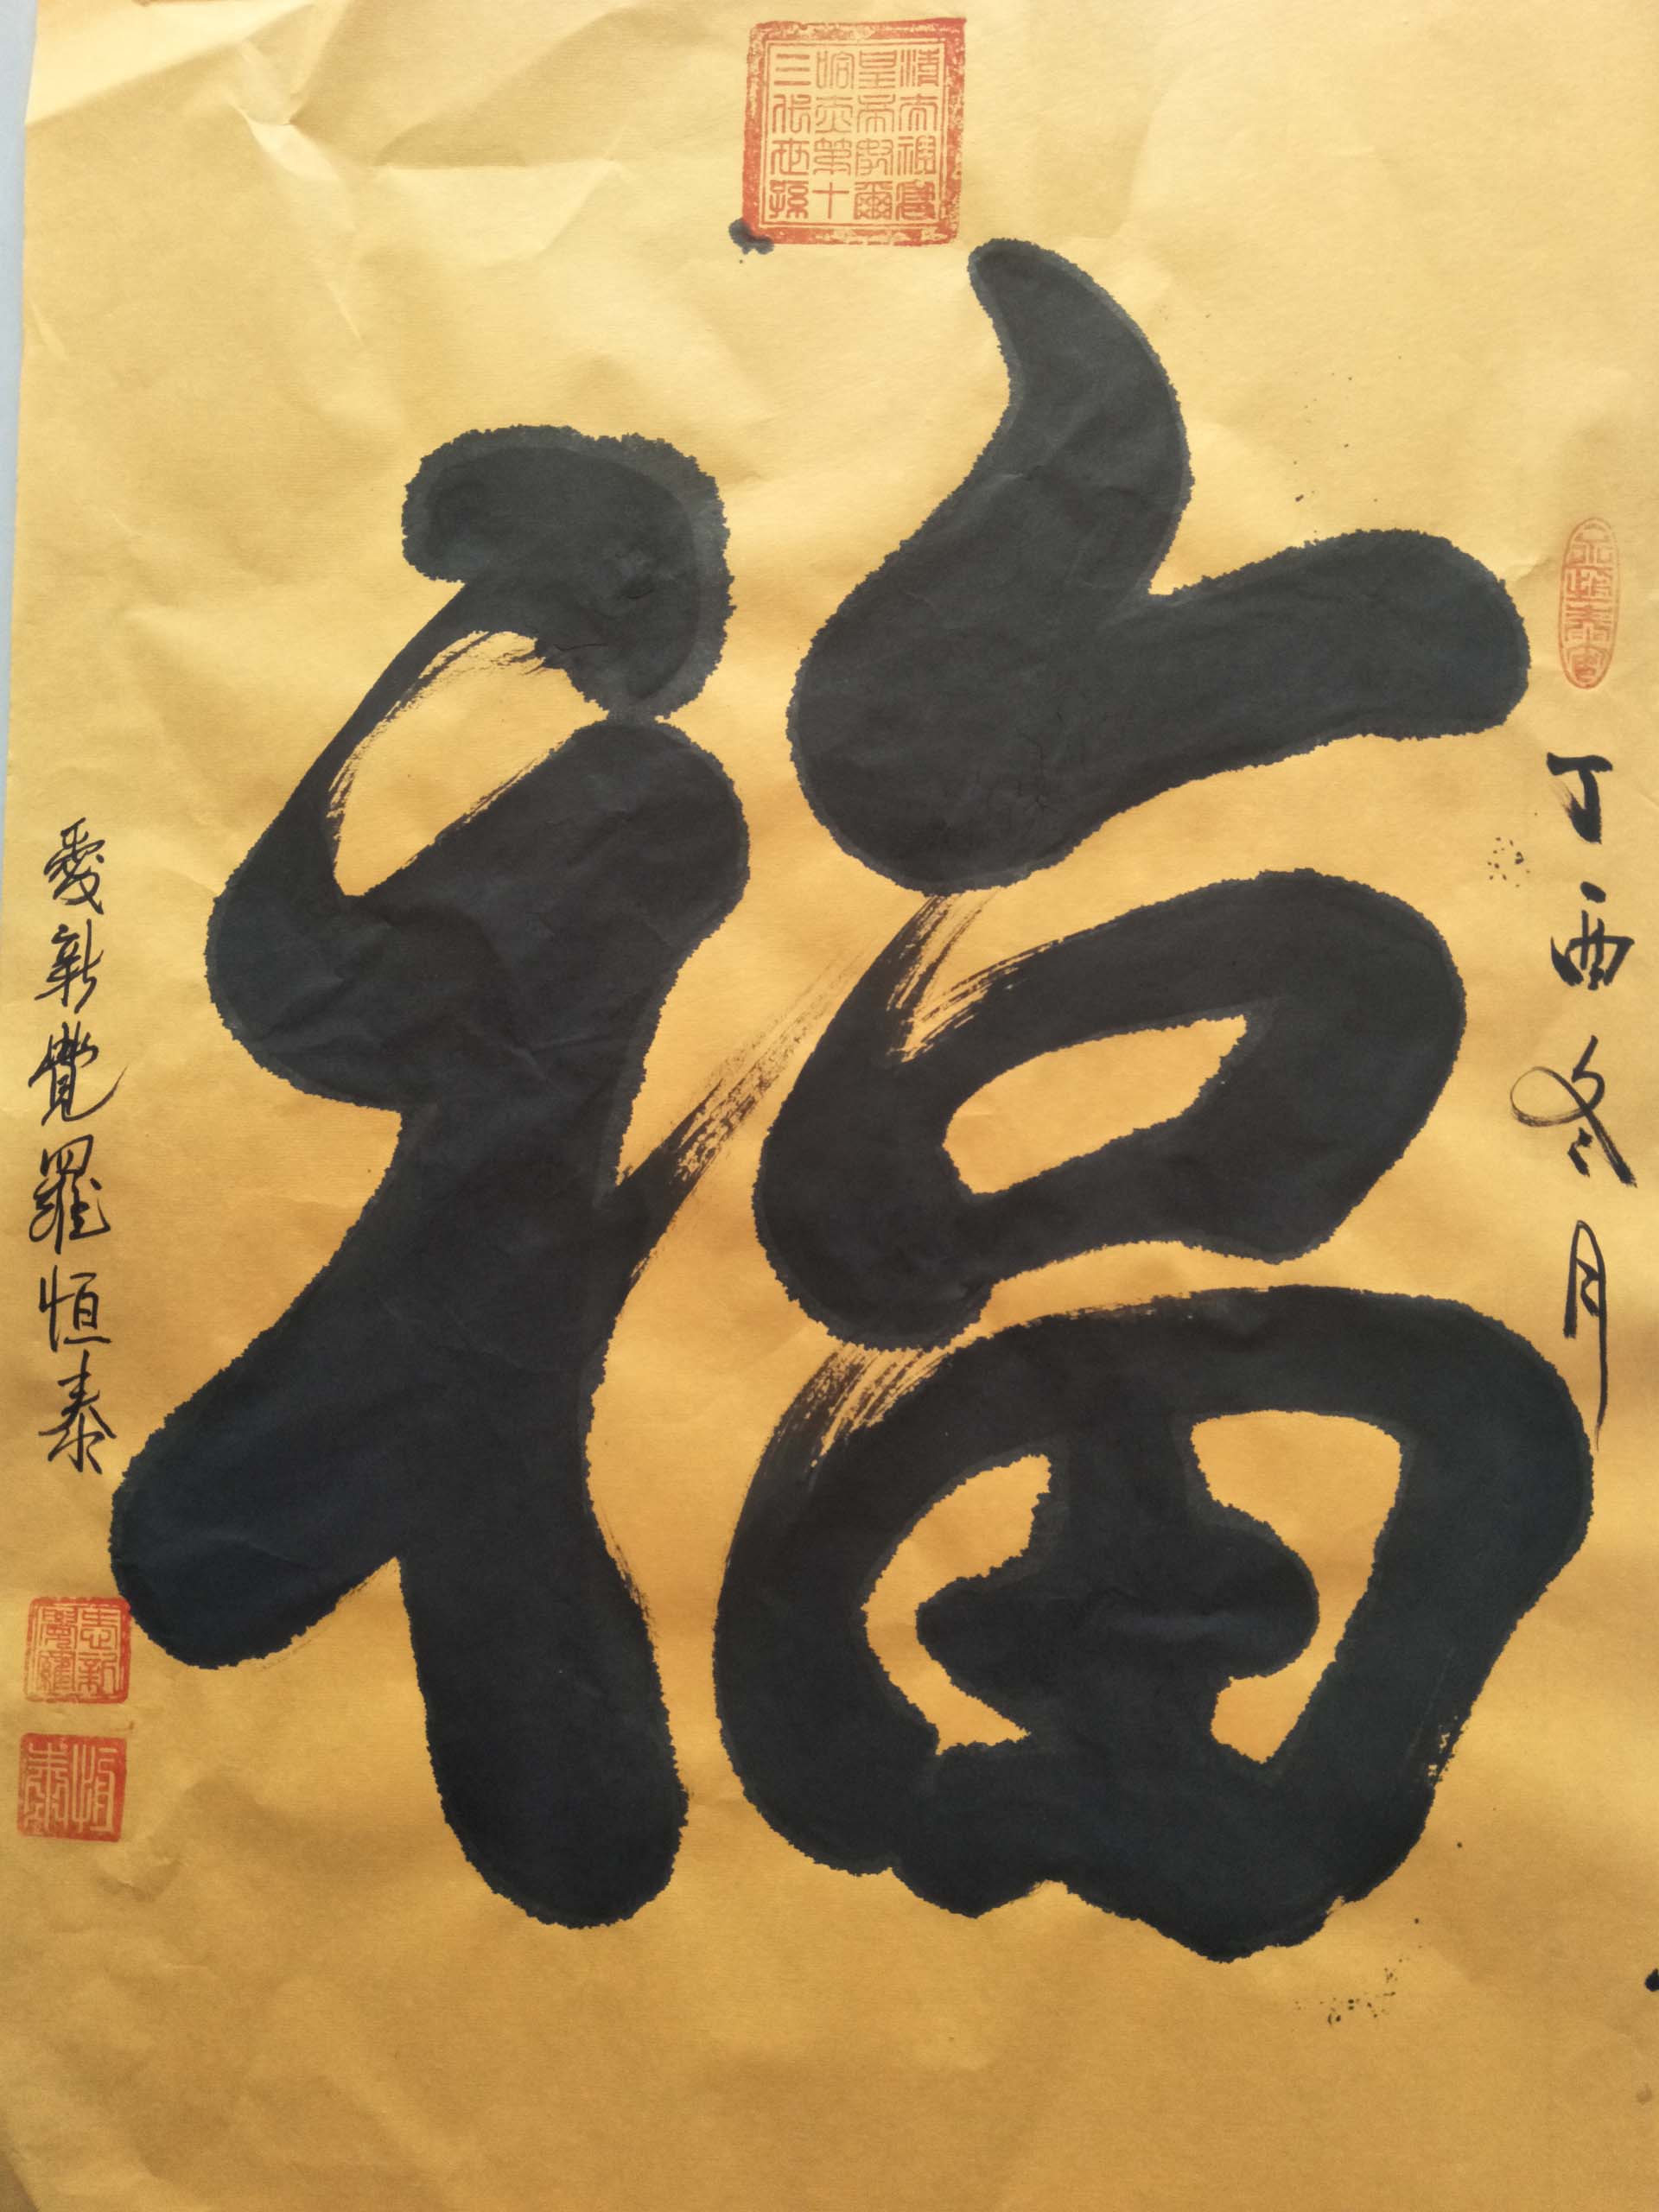 清太祖高
皇帝努爾
哈赤第十
三代世孫
福
丁酉冬月
愛新覺羅恒泰
愛新
覺羅
恒
泰